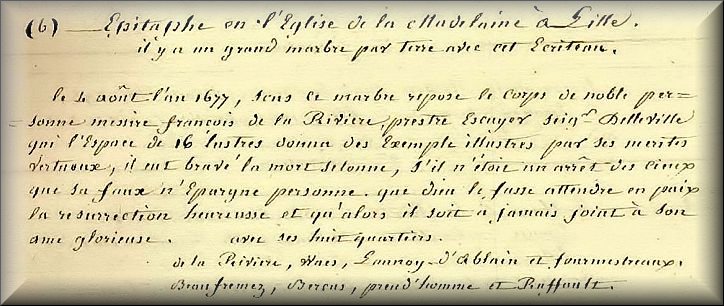 (6) Epitaphe en l'Eglise de la Madelaine à Lille.
il y a un grand marbre par terre avec cet Ecriteau.
le 4 août l'an 1677, sous ce marbre repose le corps de noble per=
=sonne messire francois de la Riviere, prestre Escuyer seigr. Delleville
qui l'Espace de 16 lustres donna des Exemple illustres par ses merites
vertueux, il eut bravé la mort felonne, s'il n'étoit un arrêt des cieux
que sa faux n'Epargne personne. que dieu le fasse attendre en paix
la resurrection heureusse et qu'alors il soit à jamais joint à son
ame glorieuse. avec ses huit quartiers.
de la Riviere, Waes, Lannoy-d'Ablain et fourmestreaux.
Beaufremez, Bercus, preud'homme et Ruffault.